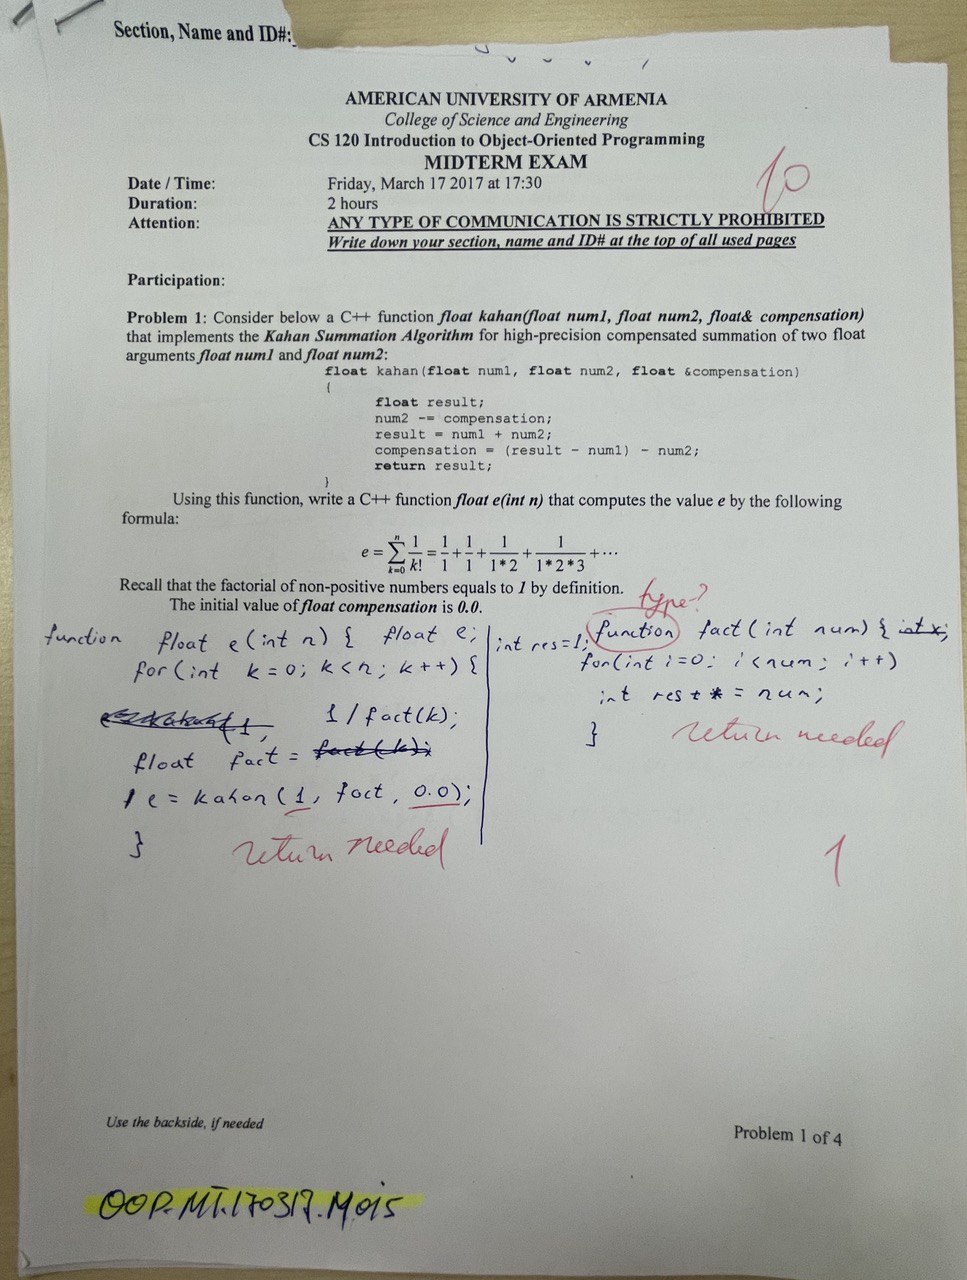 Section, Name and ID#:
AMERICAN UNIVERSITY OF ARMENIA
College of Science and Engineering
CS 120 Introduction to Object-Oriented Programming
MIDTERM EXAM
10
Date / Time: Friday, March 17 2017 at 17:30
Duration: 2 hours
Attention: ANY TYPE OF COMMUNICATION IS STRICTLY PROHIBITED
Write down your section, name and ID# at the top of all used pages
Participation:
Problem 1: Consider below a C++ function float kahan(float num1, float num2, float& compensation)
that implements the Kahan Summation Algorithm for high-precision compensated summation of two float
arguments float num1 and float num2:
float kahan(float num1, float num2, float &compensation)
{
float result;
num2 -= compensation;
result = num1 + num2;
compensation = (result - num1) - num2;
return result;
}
Using this function, write a C++ function float e(int n) that computes the value e by the following
formula:
e = ∑_{k=0}^{n} 1/k! = 1/1 + 1/1 + 1/1*2 + 1/1*2*3 + ...
Recall that the factorial of non-positive numbers equals to 1 by definition.
The initial value of float compensation is 0.0.
function float e(int n) { float e;
for(int k=0; k<n; k++) {
1/fact(k);
float fact = fact(k);
e = kahan(1, fact, 0.0);
}
return needed
type?
int res=1; function fact(int num) { int x;
for(int i=0; i<num; i++)
int res * = num;
}
return needed
1
Use the backside, if needed
Problem 1 of 4
OOP.MT.170317.M015